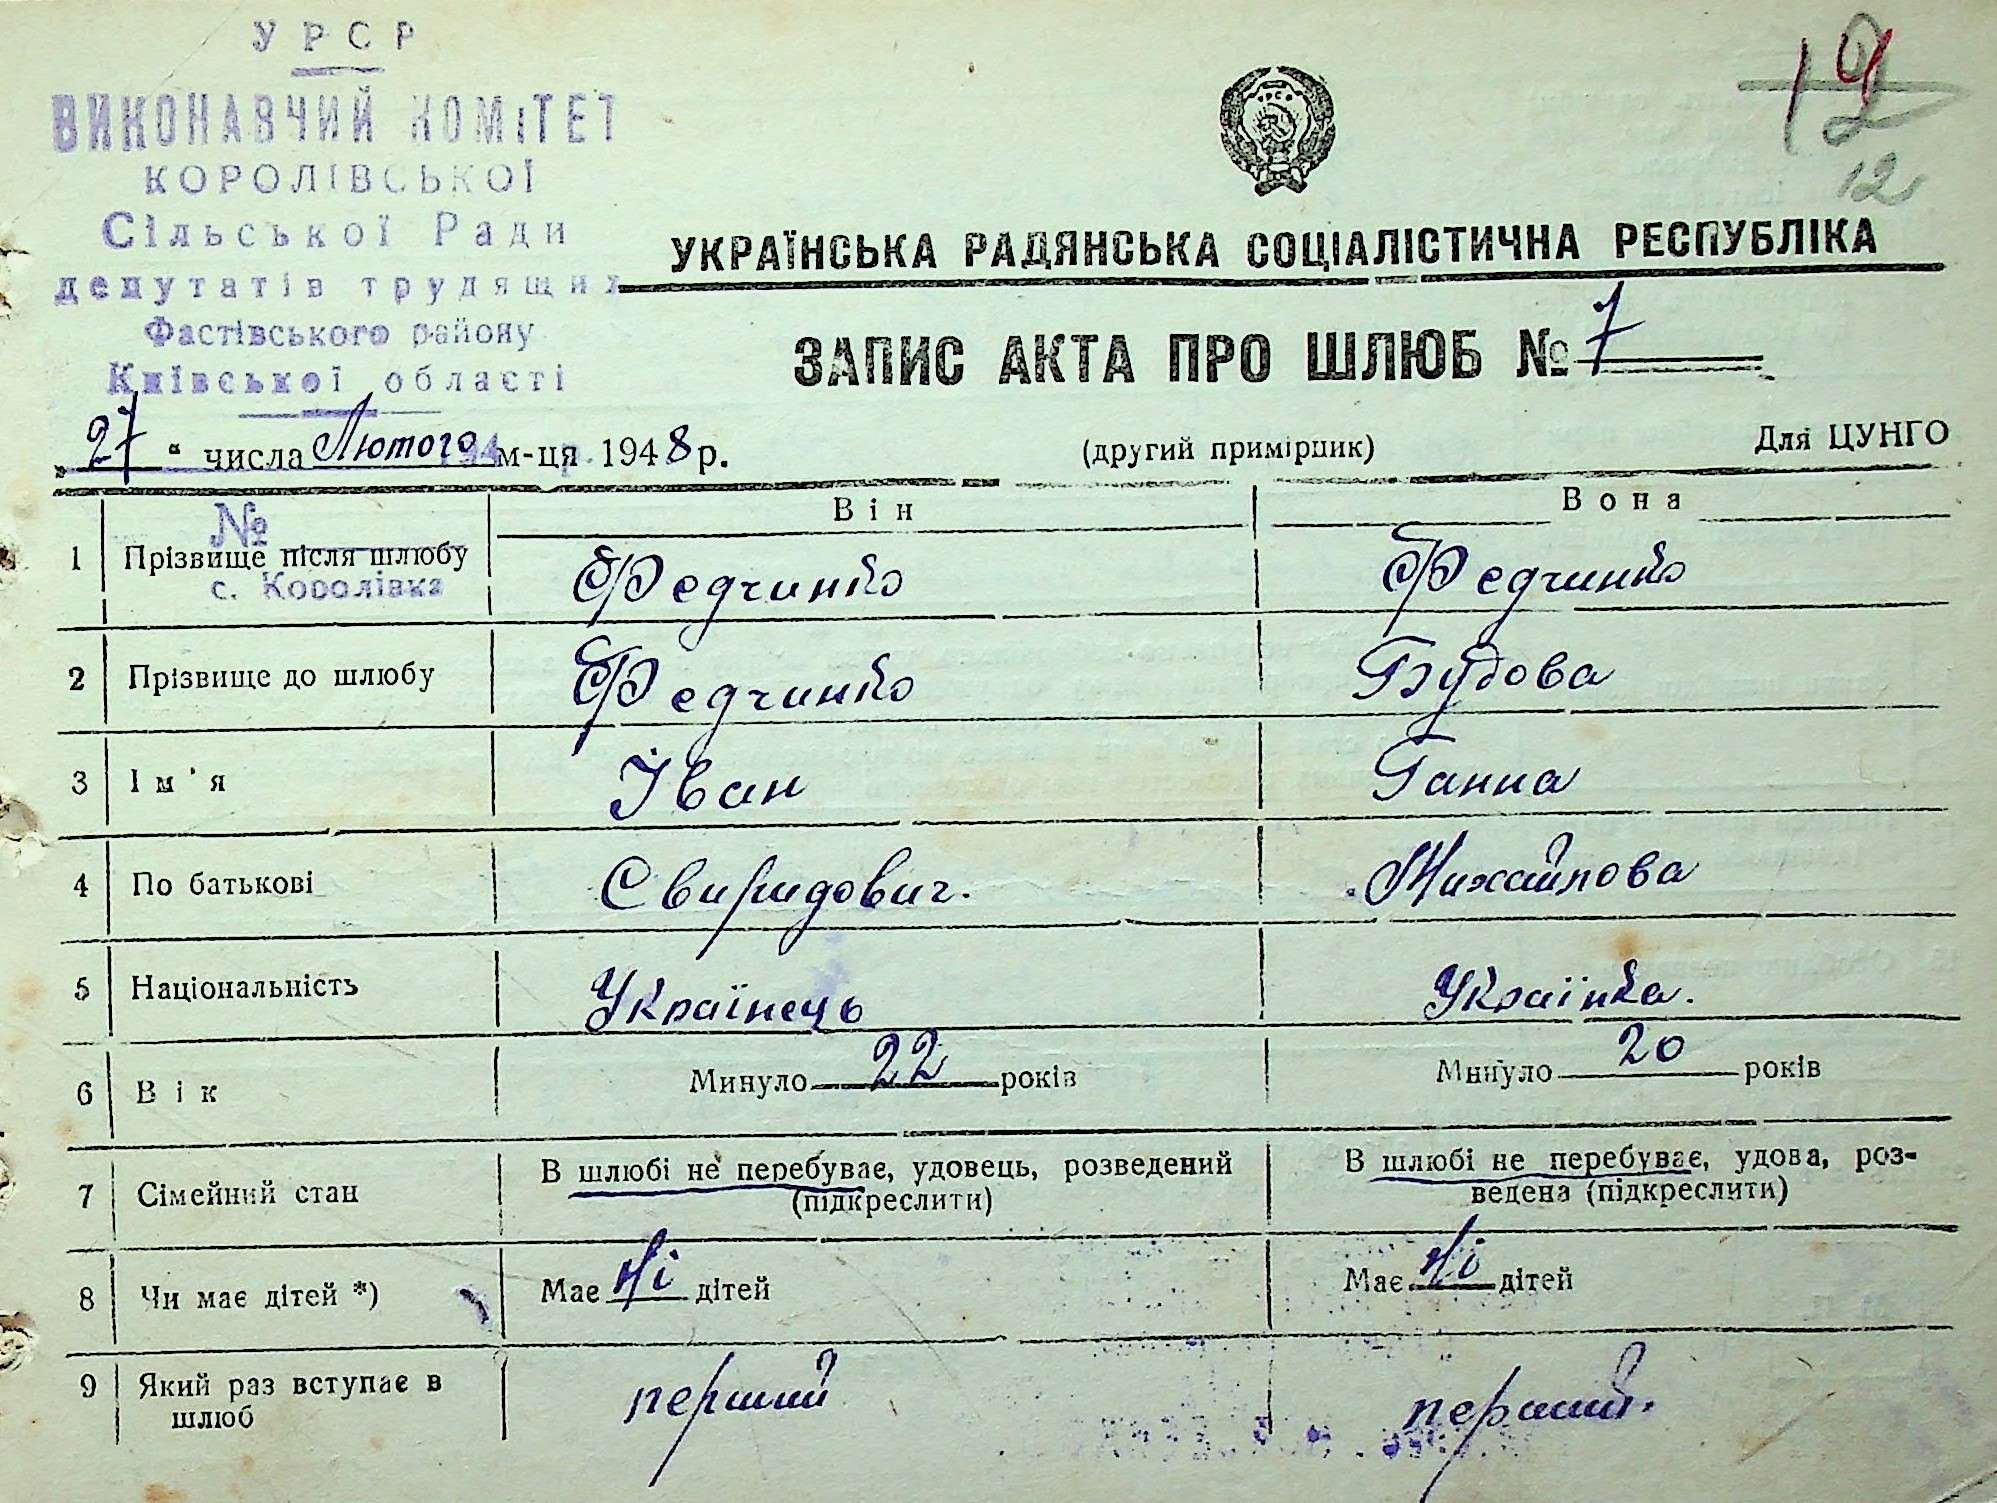 УРСР
ВИКОНАВЧИЙ КОМІТЕТ
КОРОЛІВСЬКОЇ
Сільської Ради
депутатів трудящих
Фастівського району
Київської області
19
12
УКРАЇНСЬКА РАДЯНСЬКА СОЦІАЛІСТИЧНА РЕСПУБЛІКА
ЗАПИС АКТА ПРО ШЛЮБ № 7
„27“ числа Лютого м-ця 1948 р. (другий примірник) Для ЦУНГО
№
Він Вона
1 Прізвище після шлюбу Федчинко Федчинко
с. Королівка
2 Прізвище до шлюбу Федчинко
3 Ім'я Іван Ганна
4 По батькові Свиридович. Михайлова
5 Національність Українець Українка.
6 Вік Минуло 22 років Минуло 20 років
7 Сімейний стан В шлюбі не перебуває, удовець, розведений (підкреслити) В шлюбі не перебуває, удова, роз-
ведена (підкреслити)
8 Чи має дітей *) Має ні дітей Має ні дітей
9 Який раз вступає в шлюб перший перший.